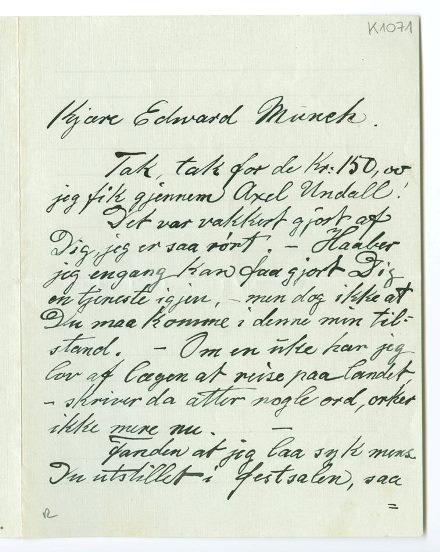 K1071
Kjære Edward Munch.
Tak, tak for de Kr: 150,00
jeg fik gjennem Axel Undall!
Det var vakkert gjort af
Dig, jeg er saa rørt. – Haaber
jeg engang kan faa gjort Dig
en tjeneste igjen, – men dog ikke at
Du maa komme i denne min til-
stand. – Om en uke har jeg
lov af lægen at reise paa landet,
– skriver da atter nogle ord, orker
ikke mere nu. –
Fanden at jeg laa syk mens
Du utstillet i festsalen, saa
=